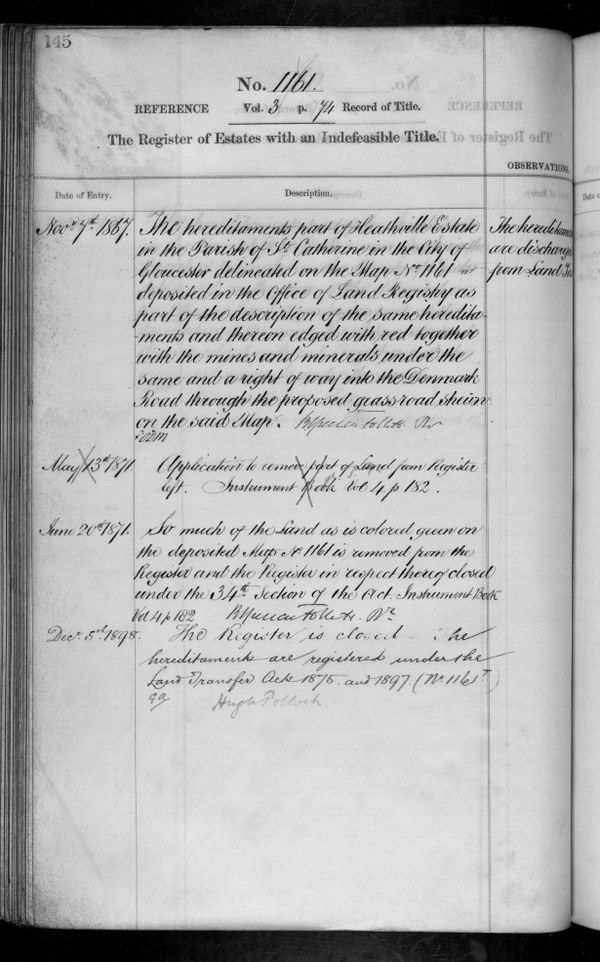 145
No. 1161.
REFERENCE Vol. 3 p. 74 Record of Title.
The Register of Estates with an Indefeasible Title.
OBSERVATIONS
Date of Entry.
Description.
Date of
Novr 7th 1867. The hereditaments part of Heathville Estate
in the Parish of St. Catherine in the City of
Gloucester delineated on the Map No 1161
deposited in the Office of Land Registry as
part of the description of the same heredita-
-ments and thereon edged with red together
with the mines and minerals under the
same and a right of way into the Denmark
Road through the proposed grass road shewn
on the said Map. Br Spencer Follett Rr
The hereditamen
are discharge
from Land Ta
May 13th 1871 Application to remove part of Land from Register
left. Instrument Book Vol 4 p 182.
June 20th 1871. So much of the Land as is colored green on
the deposited Map No 1161 is removed from the
Register and the Register in respect thereof closed
under the 34th Section of the Act. Instrument Book
Vol 4 p 182 Br Spencer Follett. Rr
Decr 5th 1898. The Register is closed. The
hereditaments are registered under the
Land Transfer Acts 1875 and 1897. (No 1161
Hugh Pollock